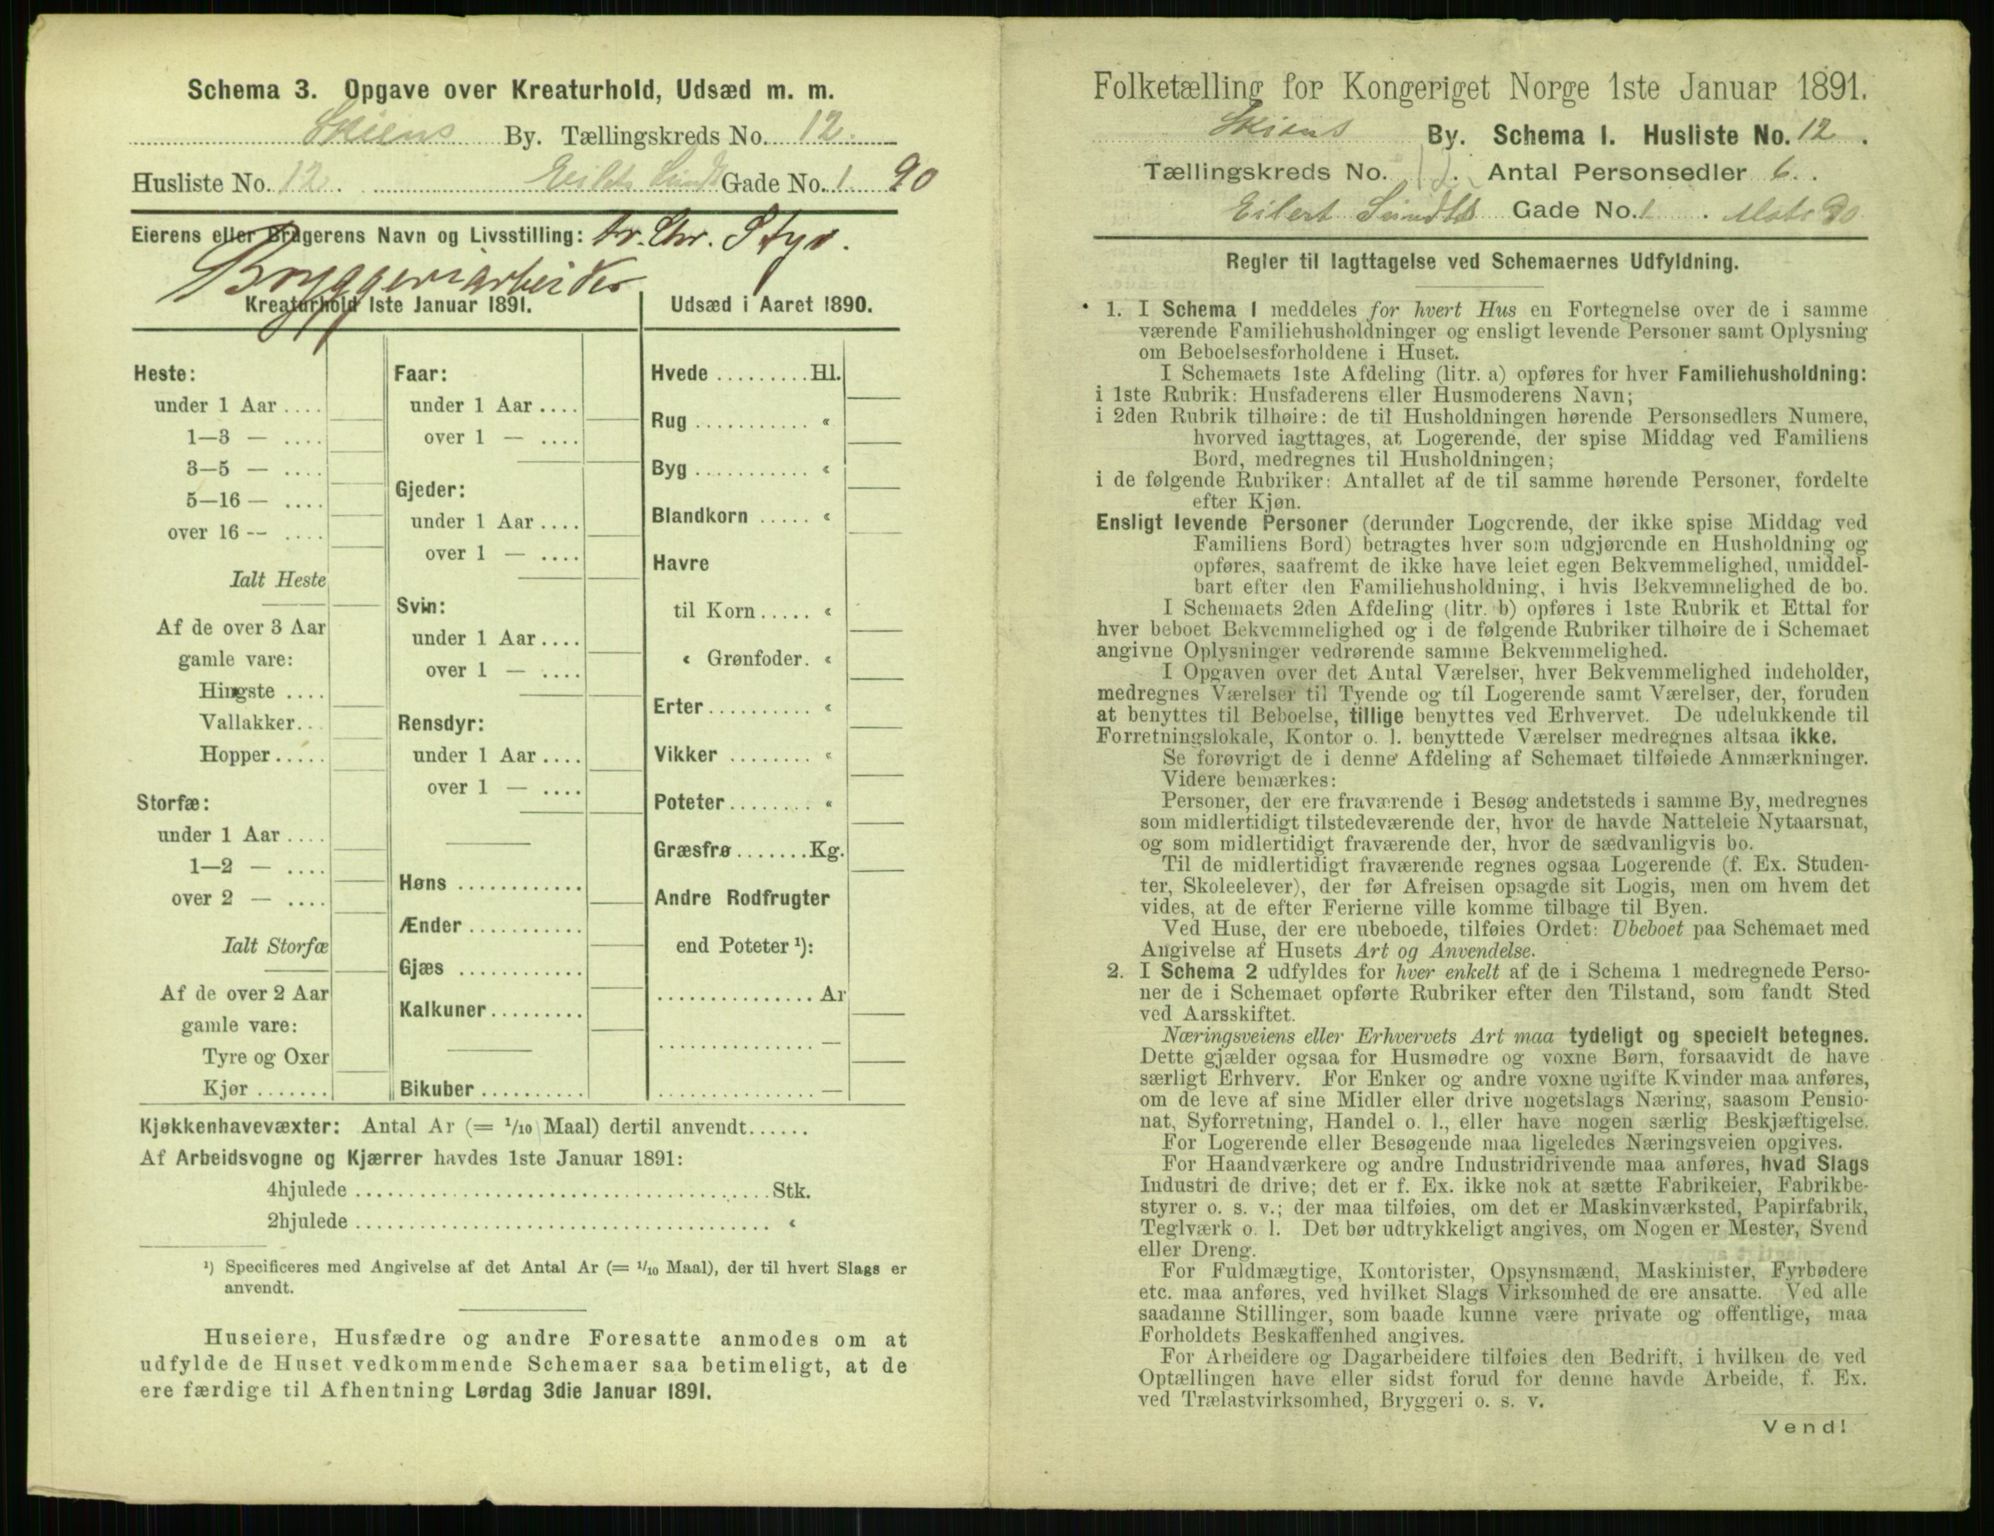 Schema 3. Opgave over Kreaturhold, Udsæd m. m.
Skiens By. Tællingskreds No. 12.
Husliste No. 12. Eilert Sundts Gade No. 1 90
Eierens eller Brugerens Navn og Livsstilling: Chr. Styr.
Bryggeriarbeider
Kreaturhold 1ste Januar 1891.
Heste:
under 1 Aar ....
1—3 — ....
3—5 — ....
5—16 — ....
over 16 -- ....
Ialt Heste
Af de over 3 Aar
gamle vare:
Hingste ....
Vallakker...
Hopper.....
Storfæ:
under 1 Aar ....
1—2 — ....
over 2 — ....
Ialt Storfæ
Af de over 2 Aar
gamle vare:
Tyre og Oxer
Kjør .......
Faar:
under 1 Aar ....
over 1 — ....
Gjeder:
under 1 Aar ....
over 1 — ....
Svin:
under 1 Aar ....
over 1 — ....
Rensdyr:
under 1 Aar ....
over 1 — ....
Høns ............
Ænder ...........
Gjæs ............
Kalkuner.........
Bikuber ..........
Udsæd i Aaret 1890.
Hvede .........Hl.
Rug ........... «
Byg ........... «
Blandkorn ..... «
Havre
til Korn..... «
« Grønfoder. «
Erter.......... «
Vikker ........ «
Poteter........ «
Græsfrø.......Kg.
Andre Rodfrugter
end Poteter ¹):
............... Ar
............... —
............... —
Kjøkkenhavevæxter: Antal Ar (= 1/10 Maal) dertil anvendt......
Af Arbeidsvogne og Kjærrer havdes 1ste Januar 1891:
4hjulede ........................................Stk.
2hjulede ........................................ «
¹) Specificeres med Angivelse af det Antal Ar (= 1/10 Maal), der til hvert Slags er
anvendt.
Huseiere, Husfædre og andre Foresatte anmodes om at
udfylde de Huset vedkommende Schemaer saa betimeligt, at de
ere færdige til Afhentning Lørdag 3die Januar 1891.
Folketælling for Kongeriget Norge 1ste Januar 1891.
Skiens By. Schema I. Husliste No. 12.
Tællingskreds No. 12. Antal Personsedler 6.
Eilert Sundts Gade No. 1. Matr 90
Regler til Iagttagelse ved Schemaernes Udfyldning.
1. I Schema I meddeles for hvert Hus en Fortegnelse over de i samme
værende Familiehusholdninger og ensligt levende Personer samt Oplysning
om Beboelsesforholdene i Huset.
I Schemaets 1ste Afdeling (litr. a) opføres for hver Familiehusholdning:
i 1ste Rubrik: Husfaderens eller Husmoderens Navn;
i 2den Rubrik tilhøire: de til Husholdningen hørende Personsedlers Numere,
hvorved iagttages, at Logerende, der spise Middag ved Familiens
Bord, medregnes til Husholdningen;
i de følgende Rubriker: Antallet af de til samme hørende Personer, fordelte
efter Kjøn.
Ensligt levende Personer (derunder Logerende, der ikke spise Middag ved
Familiens Bord) betragtes hver som udgjørende en Husholdning og
opføres, saafremt de ikke have leiet egen Bekvemmelighed, umiddel-
bart efter den Familiehusholdning, i hvis Bekvemmelighed de bo.
I Schemaets 2den Afdeling (litr. b) opføres i 1ste Rubrik et Ettal for
hver beboet Bekvemmelighed og i de følgende Rubriker tilhøire de i Schemaet
angivne Oplysninger vedrørende samme Bekvemmelighed.
I Opgaven over det Antal Værelser, hver Bekvemmelighed indeholder,
medregnes Værelser til Tyende og til Logerende samt Værelser, der, foruden
at benyttes til Beboelse, tillige benyttes ved Erhvervet. De udelukkende til
Forretningslokale, Kontor o. l. benyttede Værelser medregnes altsaa ikke.
Se forøvrigt de i denne Afdeling af Schemaet tilføiede Anmærkninger.
Videre bemærkes:
Personer, der ere fraværende i Besøg andetsteds i samme By, medregnes
som midlertidigt tilstedeværende der, hvor de havde Natteleie Nytaarsnat,
og som midlertidigt fraværende der, hvor de sædvanligvis bo.
Til de midlertidigt fraværende regnes ogsaa Logerende (f. Ex. Studen-
ter, Skoleelever), der før Afreisen opsagde sit Logis, men om hvem det
vides, at de efter Ferierne ville komme tilbage til Byen.
Ved Huse, der ere ubeboede, tilføies Ordet: Ubeboet paa Schemaet med
Angivelse af Husets Art og Anvendelse.
2. I Schema 2 udfyldes for hver enkelt af de i Schema 1 medregnede Perso-
ner de i Schemaet opførte Rubriker efter den Tilstand, som fandt Sted
ved Aarsskiftet.
Næringsveiens eller Erhvervets Art maa tydeligt og specielt betegnes.
Dette gjælder ogsaa for Husmødre og voxne Børn, forsaavidt de have
særligt Erhverv. For Enker og andre voxne ugifte Kvinder maa anføres,
om de leve af sine Midler eller drive nogetslags Næring, saasom Pensio-
nat, Syforretning, Handel o. l., eller have nogen særlig Beskjæftigelse.
For Logerende eller Besøgende maa ligeledes Næringsveien opgives.
For Haandværkere og andre Industridrivende maa anføres, hvad Slags
Industri de drive; det er f. Ex. ikke nok at sætte Fabrikeier, Fabrikbe-
styrer o. s. v.; der maa tilføies, om det er Maskinværksted, Papirfabrik,
Teglværk o. l. Det bør udtrykkeligt angives, om Nogen er Mester, Svend
eller Dreng.
For Fuldmægtige, Kontorister, Opsynsmænd, Maskinister, Fyrbødere
etc. maa anføres, ved hvilket Slags Virksomhed de ere ansatte. Ved alle
saadanne Stillinger, som baade kunne være private og offentlige, maa
Forholdets Beskaffenhed angives.
For Arbeidere og Dagarbeidere tilføies den Bedrift, i hvilken de ved
Optællingen have eller sidst forud for denne havde Arbeide, f. Ex.
ved Trælastvirksomhed, Bryggeri o. s. v.
Vend!